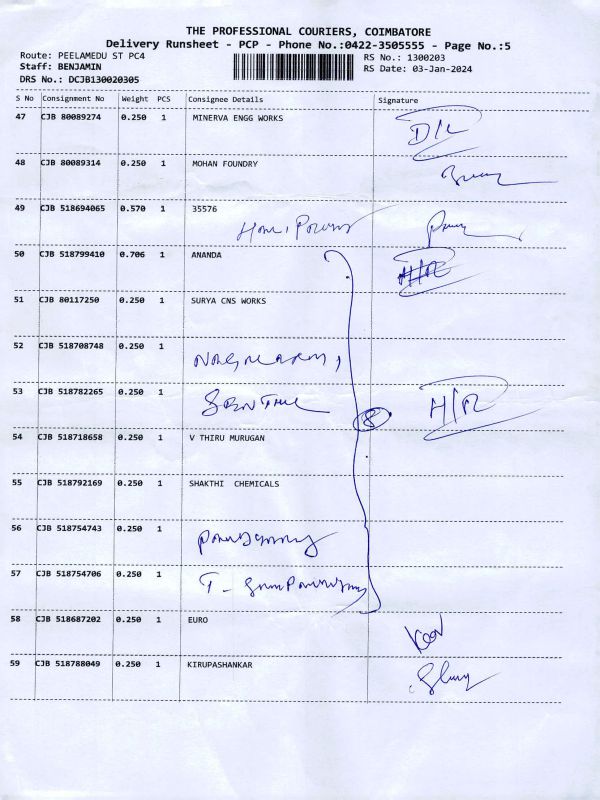 THE PROFESSIONAL COURIERS, COIMBATORE
Delivery Runsheet - PCP - Phone No.:0422-3505555 - Page No.:5
Route: PEELAMEDU ST PC4 RS No.: 1300203
Staff: BENJAMIN RS Date: 03-Jan-2024
DRS No.: DCJB130020305
S No Consignment No Weight PCS Consignee Details Signature
47 CJB 80089274 0.250 1 MINERVA ENGG WORKS D/L
48 CJB 80089314 0.250 1 MOHAN FOUNDRY
49 CJB 518694065 0.570 1 35576
50 CJB 518799410 0.706 1 ANANDA
51 CJB 80117250 0.250 1 SURYA CNS WORKS
52 CJB 518708748 0.250 1
53 CJB 518782265 0.250 1 8 H/R
54 CJB 518718658 0.250 1 V THIRU MURUGAN
55 CJB 518792169 0.250 1 SHAKTHI CHEMICALS
56 CJB 518754743 0.250 1
57 CJB 518754706 0.250 1
58 CJB 518687202 0.250 1 EURO
59 CJB 518788049 0.250 1 KIRUPASHANKAR